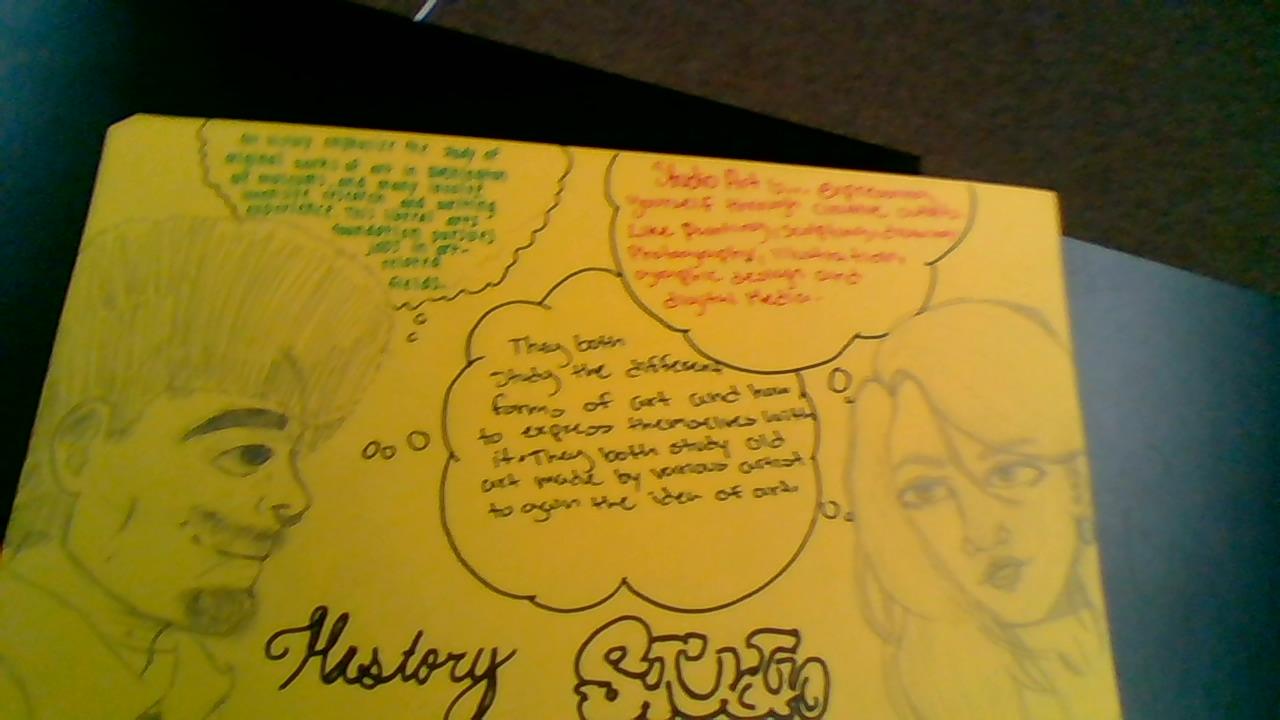 Art History emphasize the study of
original works of art in Washington
of museums, and many involve
research and writing
experience. This liberal arts
foundation
jobs in art-
related
fields.
Studio Art is... Expressing
yourself through creative outlets
Like Painting, Sculpture, drawing
Photography, illustration,
graphic design and
digital Media.
They both
study the different
forms of art and how
to express themselves with
it. They both study old
art made by various artist
to again the idea of art.
History
STUDIO